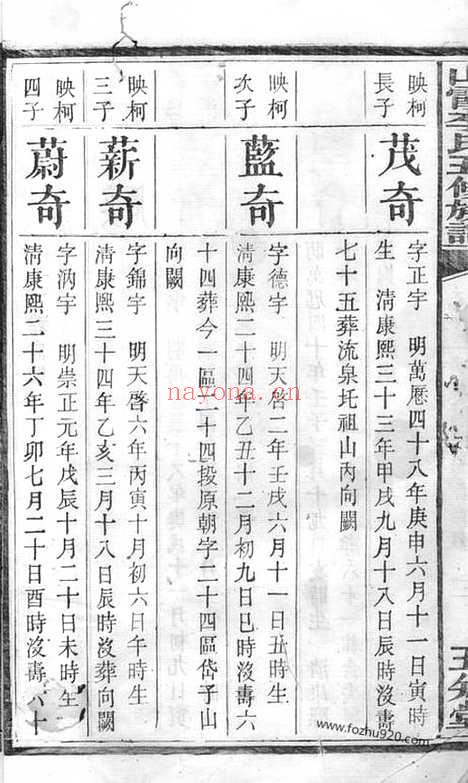 氏五修族譜
映柯
長子
茂奇
字正宇 明萬曆四十八年庚申六月十一日寅時
生 清康熙三十三年甲戌九月十八日辰時沒壽
七十五葬流泉圫祖山丙向闕
映柯
次子
藍奇
字德宇 明天啓二年壬戌六月十一日丑時生
清康熙二十四年乙丑十二月初九日巳時沒壽六
十四葬今一區二十四段原朝字二十四區岱子山
向闕
映柯
三子
薪奇
字錦宇 明天啓六年丙寅十月初六日午時生
清康熙三十四年乙亥三月十八日辰時沒葬向闕
映柯
四子
蔚奇
字汭宇 明崇正元年戊辰十月二十日未時生
清康熙二十六年丁卯七月二十日酉時沒壽六十
nayona.cn
www.fozhu920.com